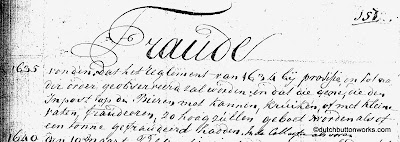 151.
Fraude
1635 vonden, dat het reglement van 1634 bij provisie en tot na
der order geobserveerd zal worden, en dat die geene, die den
Impost op Bieren met kannen, kruiken, of met kleine
vaten, frauderen, zo hoog zullen geboet worden als of
een tonne gefraudeerd hadden.
1640 den
©dutchbuttonworks.com